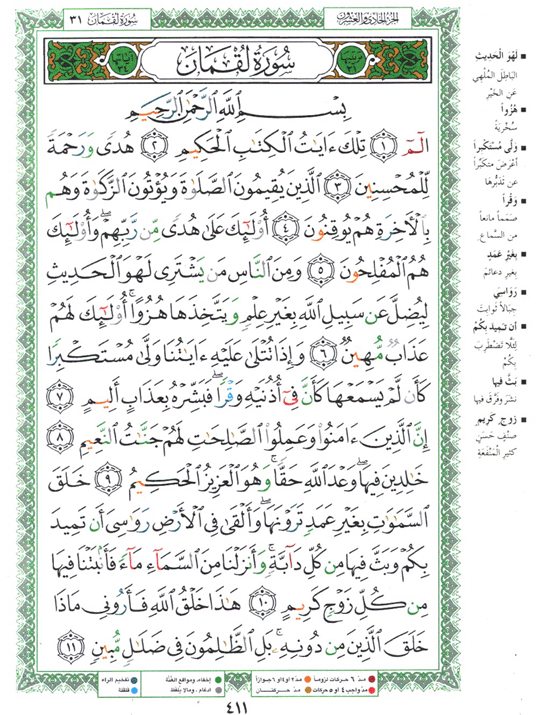 الجزء الحادي والعشرون
سورة لقمان ٣١
سُورَةُ لُقْمَان
بِسْمِ اللَّهِ الرَّحْمَٰنِ الرَّحِيمِ
الٓمٓ ١ تِلْكَ ءَايَٰتُ الْكِتَٰبِ الْحَكِيمِ ٢ هُدًى وَرَحْمَةً
لِّلْمُحْسِنِينَ ٣ الَّذِينَ يُقِيمُونَ الصَّلَوٰةَ وَيُؤْتُونَ الزَّكَوٰةَ وَهُم
بِالْأَخِرَةِ هُمْ يُوقِنُونَ ٤ أُو۟لَٰٓئِكَ عَلَىٰ هُدًى مِّن رَّبِّهِمْ ۖ وَأُو۟لَٰٓئِكَ
هُمُ الْمُفْلِحُونَ ٥ وَمِنَ النَّاسِ مَن يَشْتَرِى لَهْوَ الْحَدِيثِ
لِيُضِلَّ عَن سَبِيلِ اللَّهِ بِغَيْرِ عِلْمٍ وَيَتَّخِذَهَا هُزُوًا ۚ أُو۟لَٰٓئِكَ لَهُمْ
عَذَابٌ مُّهِينٌ ٦ وَإِذَا تُتْلَىٰ عَلَيْهِ ءَايَٰتُنَا وَلَّىٰ مُسْتَكْبِرًا
كَأَن لَّمْ يَسْمَعْهَا كَأَنَّ فِىٓ أُذُنَيْهِ وَقْرًا ۖ فَبَشِّرْهُ بِعَذَابٍ أَلِيمٍ ٧
إِنَّ الَّذِينَ ءَامَنُوا۟ وَعَمِلُوا۟ الصَّٰلِحَٰتِ لَهُمْ جَنَّٰتُ النَّعِيمِ ٨
خَٰلِدِينَ فِيهَا ۖ وَعْدَ اللَّهِ حَقًّا ۚ وَهُوَ الْعَزِيزُ الْحَكِيمُ ٩ خَلَقَ
السَّمَٰوَٰتِ بِغَيْرِ عَمَدٍ تَرَوْنَهَا ۖ وَأَلْقَىٰ فِى الْأَرْضِ رَوَٰسِىَ أَن تَمِيدَ
بِكُمْ وَبَثَّ فِيهَا مِن كُلِّ دَآبَّةٍ ۚ وَأَنزَلْنَا مِنَ السَّمَآءِ مَآءً فَأَنۢبَتْنَا فِيهَا
مِن كُلِّ زَوْجٍ كَرِيمٍ ١٠ هَٰذَا خَلْقُ اللَّهِ فَأَرُونِى مَاذَا
خَلَقَ الَّذِينَ مِن دُونِهِ ۚ بَلِ الظَّٰلِمُونَ فِى ضَلَٰلٍ مُّبِينٍ ١١
لَهْوَ الْحَدِيثِ
الباطِلَ المُلْهي
عَنِ الخَيْرِ
هُزُواً
سُخْرِيَةً
وَلَّى مُسْتَكْبِراً
أعْرَضَ مُتَكَبِّراً
عَن تَدَبُّرِهَا
وَقْراً
صَمَماً مانِعاً
من السَّماع
بِغَيْرِ عَمَدٍ
بغير دعائم
رَوَاسِيَ
جِبَالاً ثَوابِتَ
أن تَمِيدَ بِكُمْ
لِئَلَّا تَضْطَرِبَ
بِكُمْ
بَثَّ فيها
نَشَرَ وفَرَّقَ فيها
زَوْجٍ كَرِيمٍ
صِنْفٍ حَسَنٍ
كثير المَنْفَعَةِ
مدّ ٦ حركات لزوماً مدّ ٢ او ٤ او ٦ جوازاً
مدّ واجب ٤ او ٥ حركات مدّ حركتان
إخفاء، ومواقع الغُنَّة
ادغام، ومالا يُلفَظ
تفخيم الراء
قلقلة
٤١١